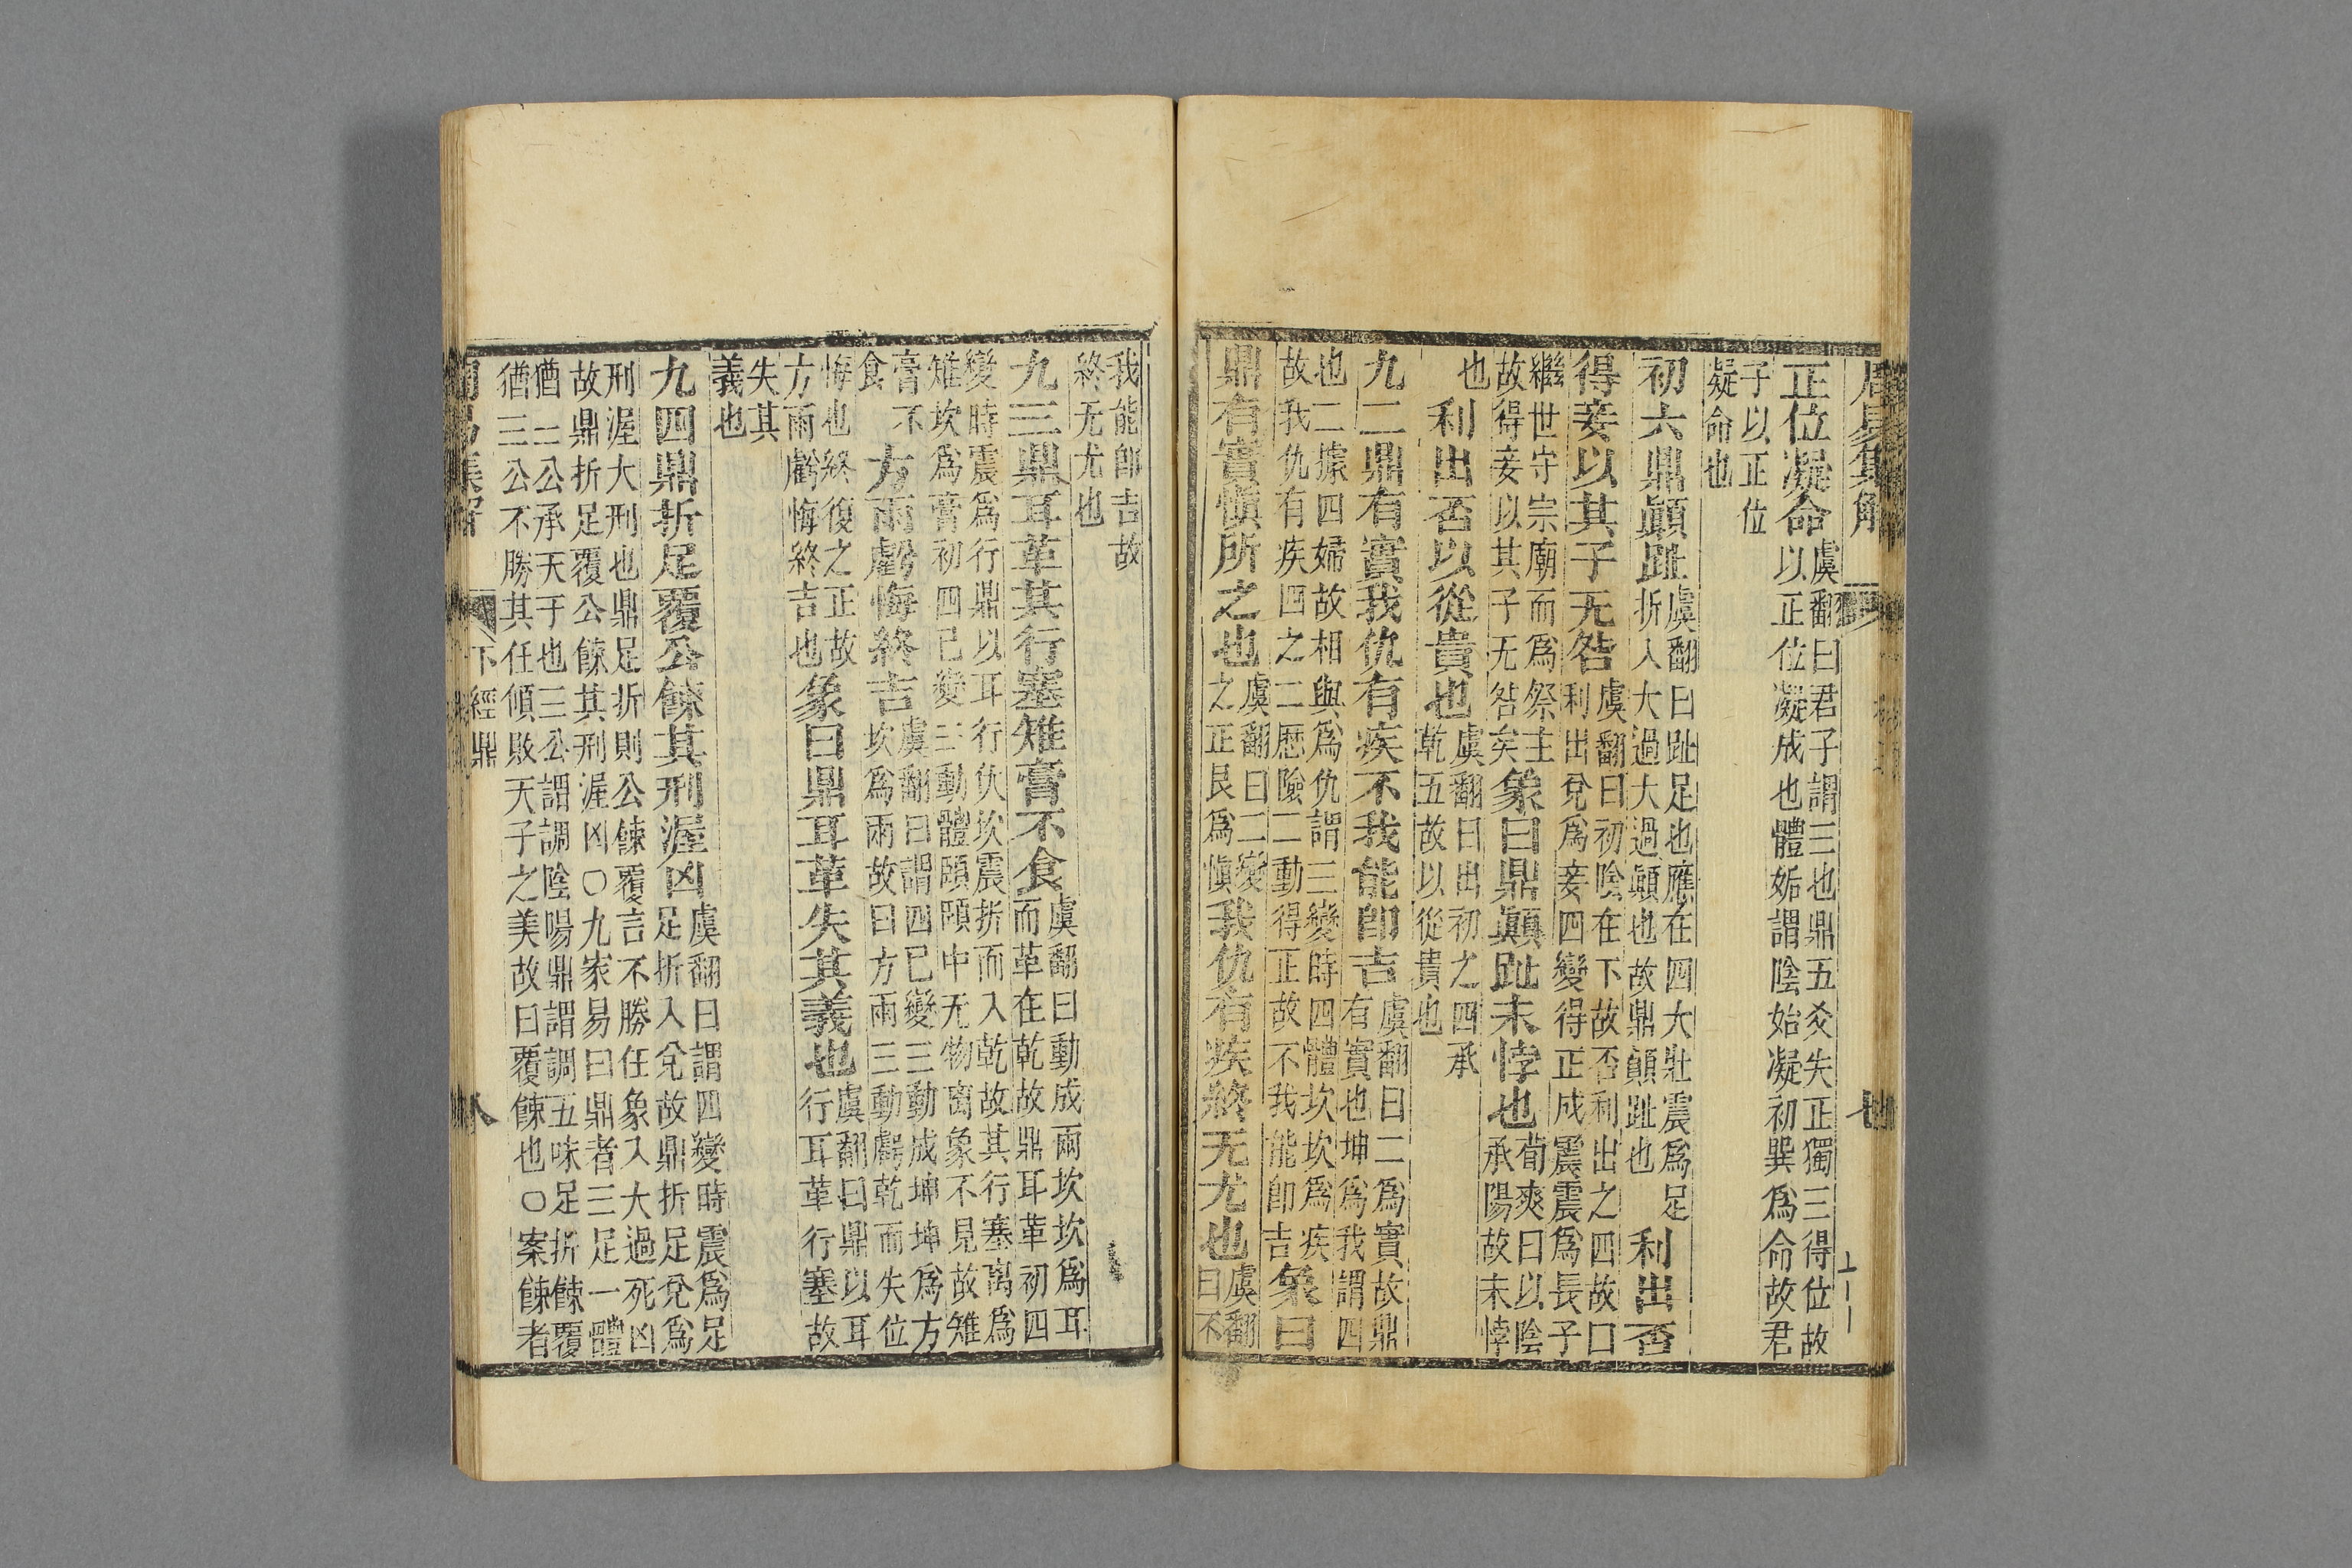 周易集解 七
正位凝命虞翻曰君子謂三也鼎五爻失正獨三得位故以正位凝成也體姤謂陰始凝初巽爲命故君
子以正位凝命也
初六鼎顚趾虞翻曰趾足也應在四大壯震爲足折入大過大過顚也故鼎顚趾也利出否
得妾以其子无咎虞翻曰初陰在下故否利出之四故口利出兌爲妾四變得正成震震爲長子
繼世守宗廟而爲祭主故得妾以其子无咎矣象曰鼎顚趾未悖也荀爽曰以陰承陽故未悖
也利出否以從貴也虞翻曰出初之四承乾五故以從貴也
九二鼎有實我仇有疾不我能卽吉虞翻曰二爲實故鼎有實也坤爲我謂四
也二據四婦故相與爲仇謂三變時四體坎坎爲疾故我仇有疾四之二歷險二動得正故不我能卽吉象曰
鼎有實愼所之也虞翻曰二變之正艮爲愼我仇有疾終无尤也虞翻曰不
我能卽吉故終无尤也
九三鼎耳革其行塞雉膏不食虞翻曰動成兩坎坎爲耳而革在乾故鼎耳革初四
變時震爲行鼎以耳行伏坎震折而入乾故其行塞离爲雉坎爲膏初四已變三動體頤頤中无物离象不見故雉
膏不食方雨虧悔終吉虞翻曰謂四已變三動成坤坤爲方坎爲雨故曰方雨三動虧乾而失位
悔也終復之正故方雨虧悔終吉也象曰鼎耳革失其義也虞翻曰鼎以耳行耳革行塞故
失其義也
九四鼎折足覆公餗其刑渥凶虞翻曰謂四變時震爲足足折入兌故鼎折足兌爲
刑渥大刑也鼎足折則公餗覆言不勝任象入大過死凶故鼎折足覆公餗其刑渥凶○九家易曰鼎者三足一體
猶三公承天子也三公謂調陰陽鼎謂調五味足折餗覆猶三公不勝其任傾敗天子之美故曰覆餗也○案餗者
周易集解 下經鼎 八